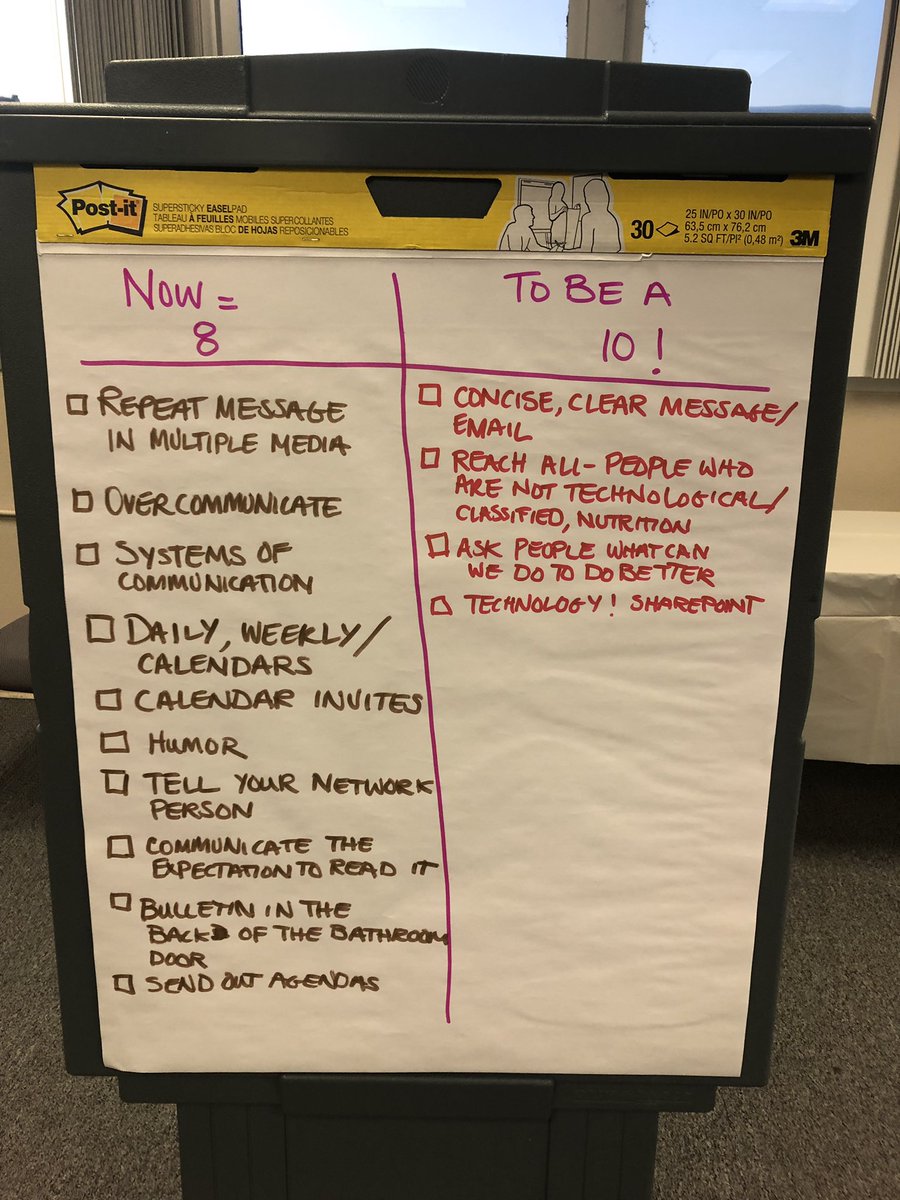 Post-it
SUPERSTICKY EASEL PAD
TABLEAU À FEUILLES MOBILES SUPERCOLLANTES
SUPERADHESIVAS BLOC DE HOJAS REPOSICIONABLES
30
25 IN/PO x 30 IN/PO
63,5 cm x 76,2 cm
5.2 SQ FT/PI² (0,48 m²)
3M
NOW =
8
REPEAT MESSAGE
IN MULTIPLE MEDIA
OVERCOMMUNICATE
SYSTEMS OF
COMMUNICATION
DAILY, WEEKLY/
CALENDARS
CALENDAR INVITES
HUMOR
TELL YOUR NETWORK
PERSON
COMMUNICATE THE
EXPECTATION TO READ IT
BULLETIN IN THE
BACK OF THE BATHROOM
DOOR
SEND OUT AGENDAS
TO BE A
10!
CONCISE, CLEAR MESSAGE/
EMAIL
REACH ALL - PEOPLE WHO
ARE NOT TECHNOLOGICAL/
CLASSIFIED, NUTRITION
ASK PEOPLE WHAT CAN
WE DO TO DO BETTER
TECHNOLOGY! SHAREPOINT